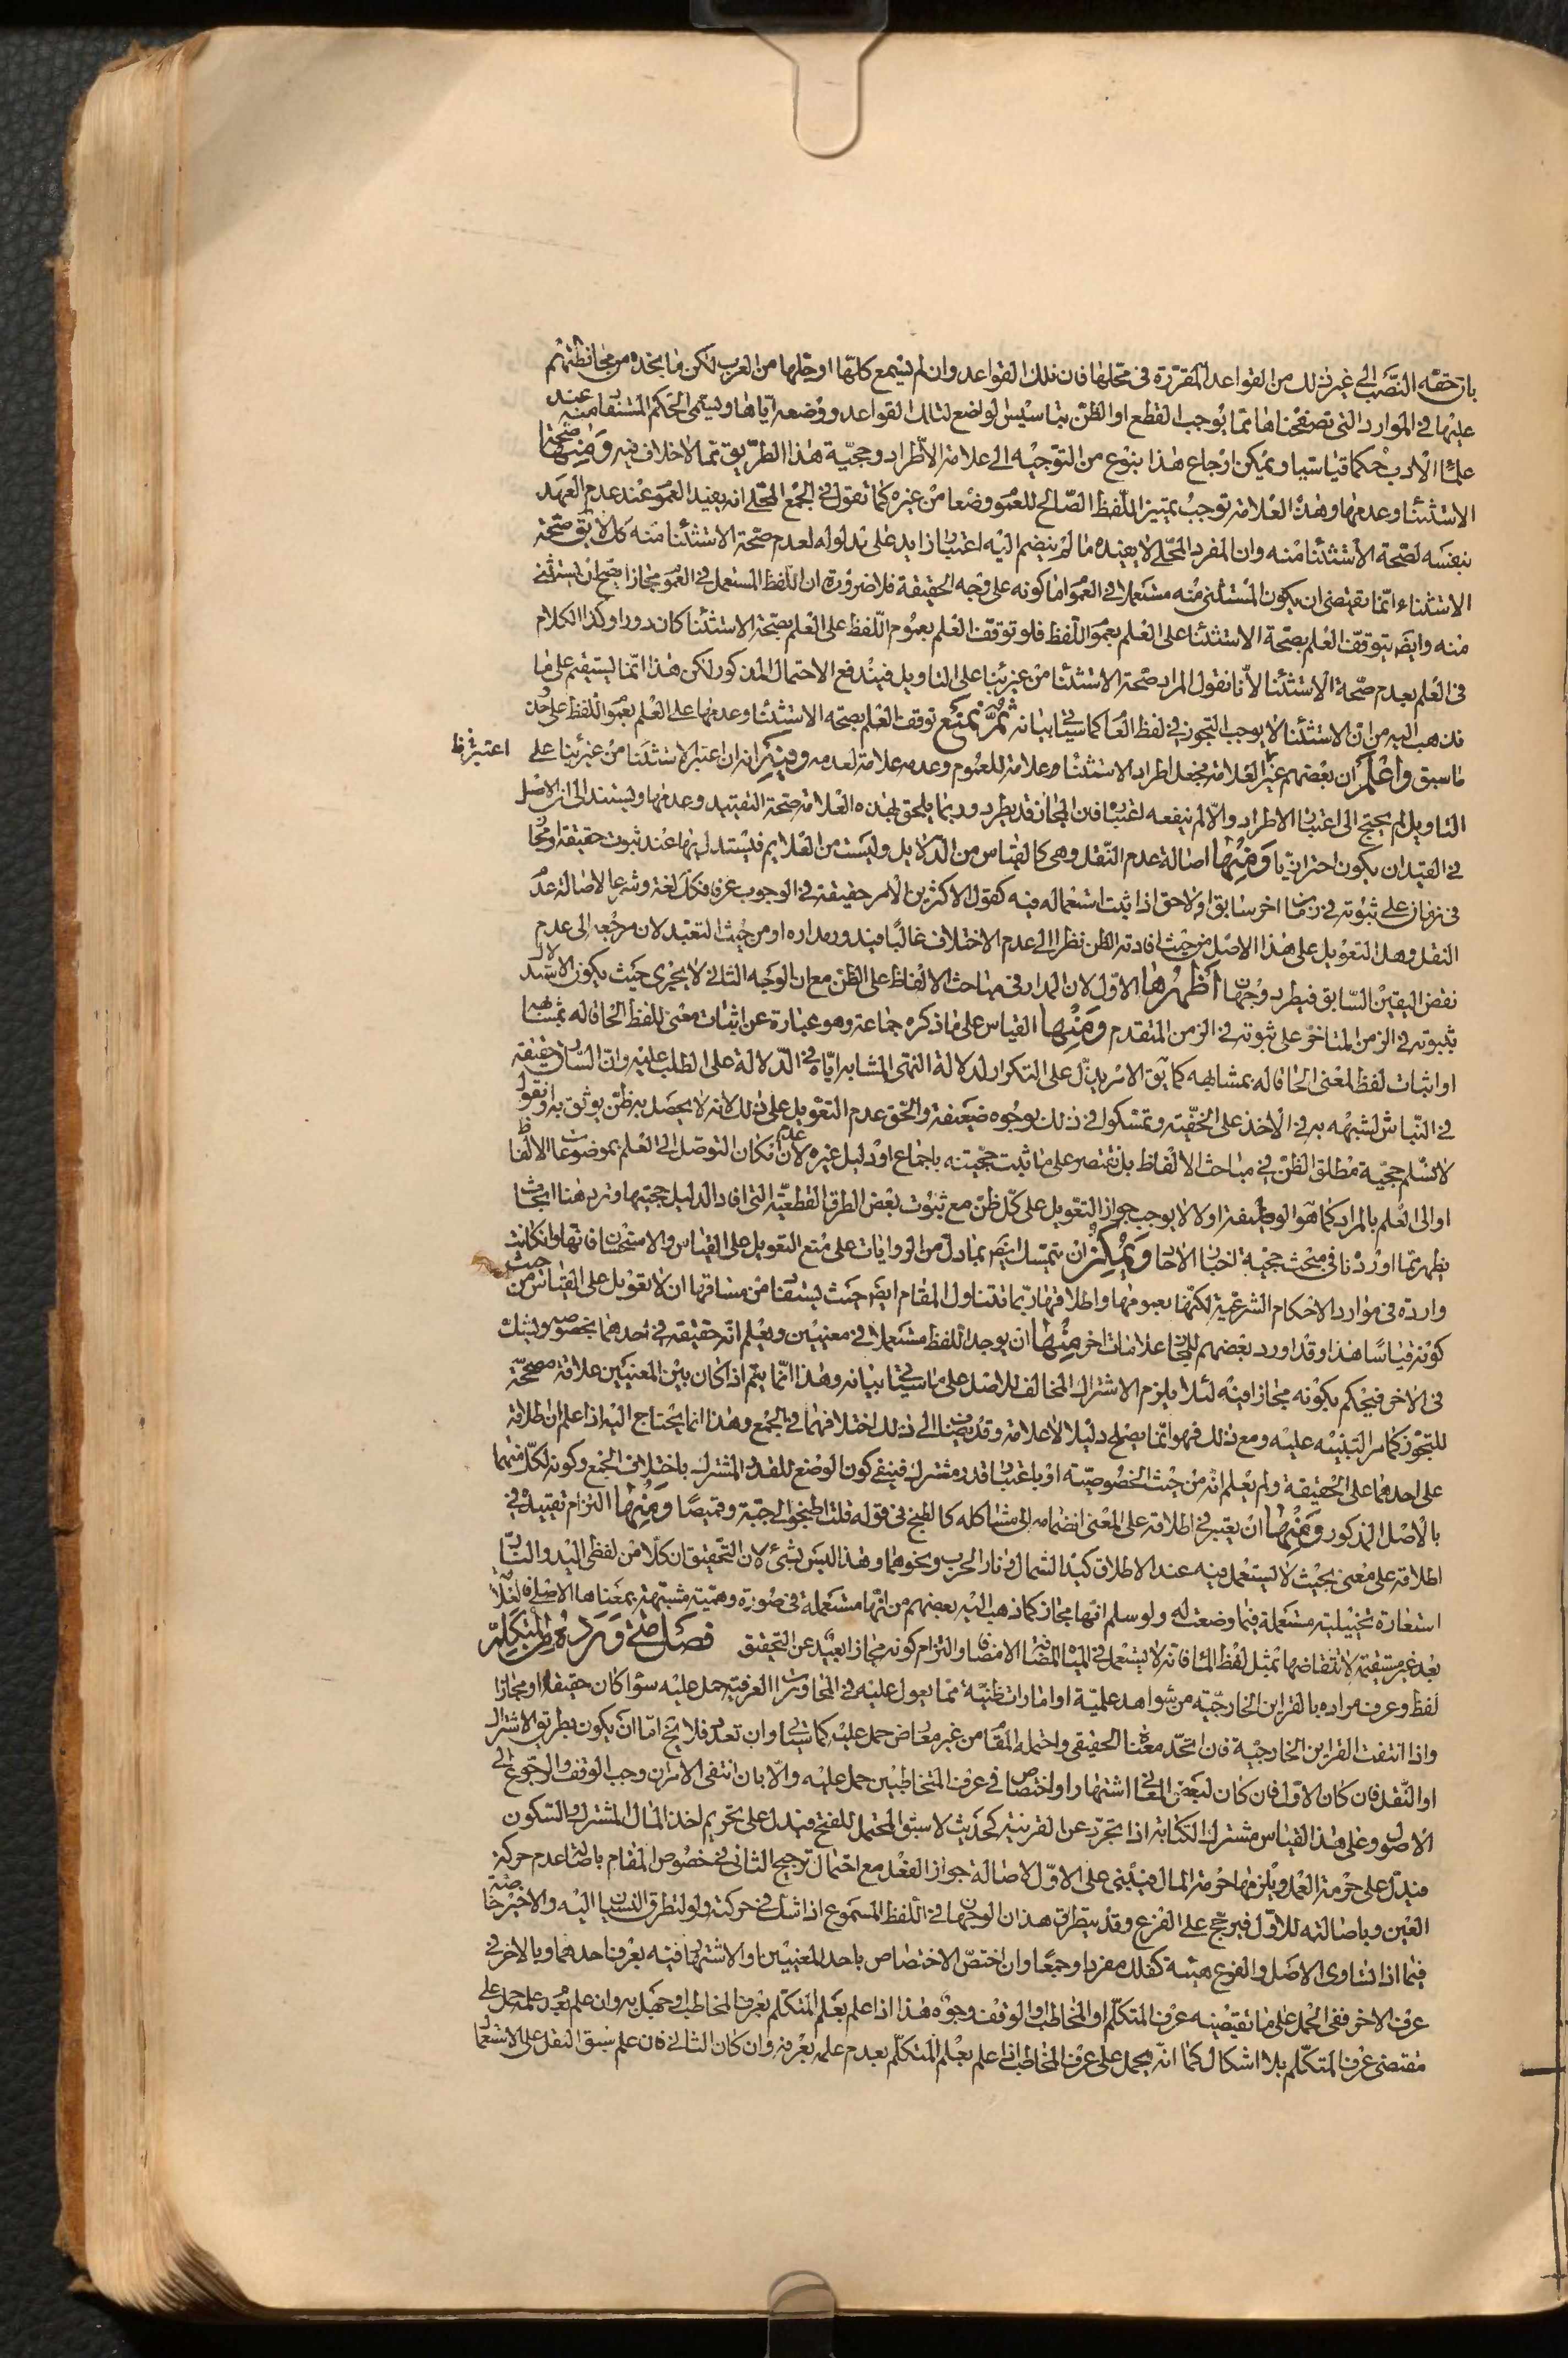 بان حقه النصب الى غير ذلك من القواعد المقررة فى محلها فان تلك القواعد وان لم يسمع كلها او جلها من العرب لكن ما نجده من محافظتهم
عليها فى الموارد التى تصفحناها مما يوجب القطع او الظن بتاسيس الواضع لتلك القواعد ووضعه اياها ويسمى الحكم المستفا منه عند
علماء الادب حكما قياسيا ويمكن ارجاع هذا بنوع من التوجيه الى علامة الاطراد وحجية هذا الطريق مما لا خلاف فيه ومنها صحة
الاستثنا وعدمها وهذه العلامة توجب تميز اللفظ الصالح للعمو وضعا من غيره كما نقول فى الجمع المحلى انه يفيد العمو عند عدم العهد
بنفسه لصحة الاستثنا منه وان المفرد المحلى لا يفيده ما لم ينضم اليه اعتبا زايد على مدلوله لعدم صحة الاستثنا منه كلا يق صحة
الاستثناء انما تقتضى ان يكون المستثنى منه مستعملا فى العمو اما كونه على وجه الحقيقة فلا ضرورة ان اللفظ المستعمل فى العمو مجازا يصح ان يستثنى
منه وايضه يتوقف العلم بصحة الاستثنا على العلم بعمو اللفظ فلو توقف العلم بعموم اللفظ على العلم بصحة الاستثنا كان دورا وكذا الكلام
فى العلم بعدم صحة الاستثنا لانا نقول المراد صحة الاستثنا من غير بنا على التاويل فيندفع الاحتمال المذكور لكن هذا انما يستقيم على ما
نذهب اليه من ان الاستثنا لا يوجب التجوز فى لفظ العا كما سياتى بيانه ثم نمنع توقف العلم بصحة الاستثنا وعدمها على العلم بعمو اللفظ على حد
ما سبق واعلم ان بعضهم غير العلامة فجعل اطراد الاستثنا علامة للعموم وعدمه علامة لعدمه وفيه انه ان اعتبر الاستثنا من غير بنا على
اعتبر فى ظ
التاويل لم يحتج الى اعتبا الاطراد والا لم ينفعه اعتبا فان المجاز قد يطرد وربما يلحق بهذه العلامة صحة التقييد وعدمها ويستند الى ان الاصل
فى القيد ان يكون احترازيا ومنها اصالة عدم النقل وهى كالقياس من الدلايل وليست من العلايم فيستدل بها عند ثبوت حقيقة او مجا
فى زمان على ثبوته فى زمان اخر سابق او لاحق اذا ثبت استعماله فيه كقول الاكثر ان الامر حقيقة فى الوجوب عرفا فكك لغة وشرعا لاصالة عد
النقل وهل التعويل على هذا الاصل من حيث افادته الظن نظرا الى عدم الاختلاف غالبا فيدور مداره او من حيث التعبد لان مرجعه الى عدم
نقض اليقين السابق فيطرد وجهان اظهرها الاول لان المدار فى مباحث الالفاظ على الظن مع ان الوجه الثانى لا يجرى حيث يكون الاستد لال
بثبوته فى الزمن المتاخر على ثبوته فى الزمن المتقدم ومنها القياس على ما ذكره جماعة وهو عبارة عن اثبات معنى للفظ الحاقا له بمشابهه
او اثبات لفظ لمعنى الحاقا له بمشابهه كما يق الامر يدل على التكرار لدلالة النهى المشابه اياه فى الدلالة على الطلب عليه وان السارق حقيقة
فى النباش لشبهه به فى الاخذ على الخفية وتمسكوا فى ذلك بوجوه ضعيفة والحق عدم التعويل على ذلك لانه لا يحصل به ظن يوثق به او نقول
لا نسلم حجية مطلق الظن فى مباحث الالفاظ بل نقتصر على ما ثبت حجيته باجماع او دليل غيره لان عدم امكان التوصل الى العلم بموضوعات الالفاظ
او الى العلم بالمراد كما هو الوظيفة اولا لا يوجب جواز التعويل على كل ظن مع ثبوت بعض الطرق القطعية التى افاد الدليل حجيتها وترد هنا ابحاث
يظهر مما اوردنا فى مبحث حجية اخبا الاحا ويمكن ان يتمسك ايضه بما دل من الروايات على منع التعويل على القياس والاستحسان فانها وان كانت
واردة فى موارد الاحكام الشرعية لكنها بعمومها واطلاقها ربما تتناول المقام ايضه حيث يستفا من مساقها ان لا تعويل على القياس من حيث
كونه قياسا هذا وقد اورد بعضهم للمجاز علامات اخر منها ان يوجد اللفظ مستعملا فى معنيين ويعلم انه حقيقة فى احدهما بخصوصه ويشك
فى الاخر فيحكم بكونه مجازا فيه لئلا يلزم الاشتراك المخالف للاصل على ما سياتى بيانه وهذا انما يتم اذا كان بين المعنيين علاقة مصححة
للتجوز كما مر التنبيه عليه ومع ذلك فهو انما يصلح دليلا لا علامة وقد يضاف الى ذلك اختلافهما فى الجمع وهذا انما يحتاج اليه اذا علم ان اطلاقه
على احدهما على الحقيقة ولم يعلم انه من حيث الخصوصية او باعتبا قدر مشترك فينفى كون الوضع للقدر المشترك باختلاف الجمع وكونه لكل منهما
بالاصل المذكور ومنها ان يعتبر فى اطلاقه على المعنى انضمامه الى مشاكله كالطبخ فى قوله قلت اطبخوا لى جبة وقميصا ومنها التزام تقييده فى
اطلاقه على معنى بحيث لا يستعمل فيه عند الاطلاق كيد الشمال ونار الحرب ونحوهما وهذا ليس بشئ لان التحقيق ان كلا من لفظى اليد والنار
استعارة تخييلية مستعملة فيما وضعت له ولو سلم انها مجاز كما ذهب اليه بعضهم من انها مستعملة فى صورة وهمية مشبهة بمعناها الاصلى فالعلا
بعد غير مستقيمة لانتقاضها بمثل لفظ الما فانه لا يستعمل فى المياه المضافة الا مضافا والتزام كونه مجازا بعيد عن التحقيق فصل متى ورد من المتكلم
لفظ وعرف مراده بالقراين الخارجية من شواهد علمية او امارات ظنية مما يعول عليه فى المحاورات العرفية حمل عليه سوا كان حقيقة او مجازا
واذا انتفت القراين الخارجية فان اتحد معناه الحقيقى واحتمله المقام من غير معارض حمل عليه كما سياتى وان تعدد فلا يخ اما ان يكون بطريق الاشتراك
او النقل فان كان الاول فان كان لبعض المعانى اشتهار او اختصاص فى عرف المتخاطبين حمل عليه والا بان انتفى الامران وجب الوقف والرجوع الى
الاصول وعلى هذا القياس مشترك الكتابة اذا تجرد عن القرينة كحديث لا سبق المحتمل للفتح فيدل على تحريم اخذ المال المشترك والسكون
فيدل على حرمة العمل ويلزمها حرمة المال فيبنى على الاول لاصالة جواز الفعل مع احتمال ترجيح الثانى فى خصوص المقام باصالة عدم حركة
العين وباصالته للاول فيرجح على الفرع وقد يتطرق هذان الوجهان فى اللفظ المسموع اذا شك فى حركته ولو لتطرق النسيان اليه والاخير خاصة
فيما اذا تساوى الاصل والفرع هيئة كفلك مفردا وجمعا وان اختص الاختصاص باحد المعنيين او الاشتهار فيه بعرف احدهما وبالاخر فى
عرف الاخر ففى الحمل على ما تقتضيه عرف المتكلم او المخاطب او الوقف وجوه هذا اذا علم بعلم المتكلم بعرف المخاطب او جهل به وان علم بعدم علمه حمل على
مقتضى عرف المتكلم بلا اشكال كما انه يحمل على عرف المخاطب اذا علم بعلم المتكلم بعدم علمه بعرفه وان كان الثانى فان علم سبق النقل على الاستعمال